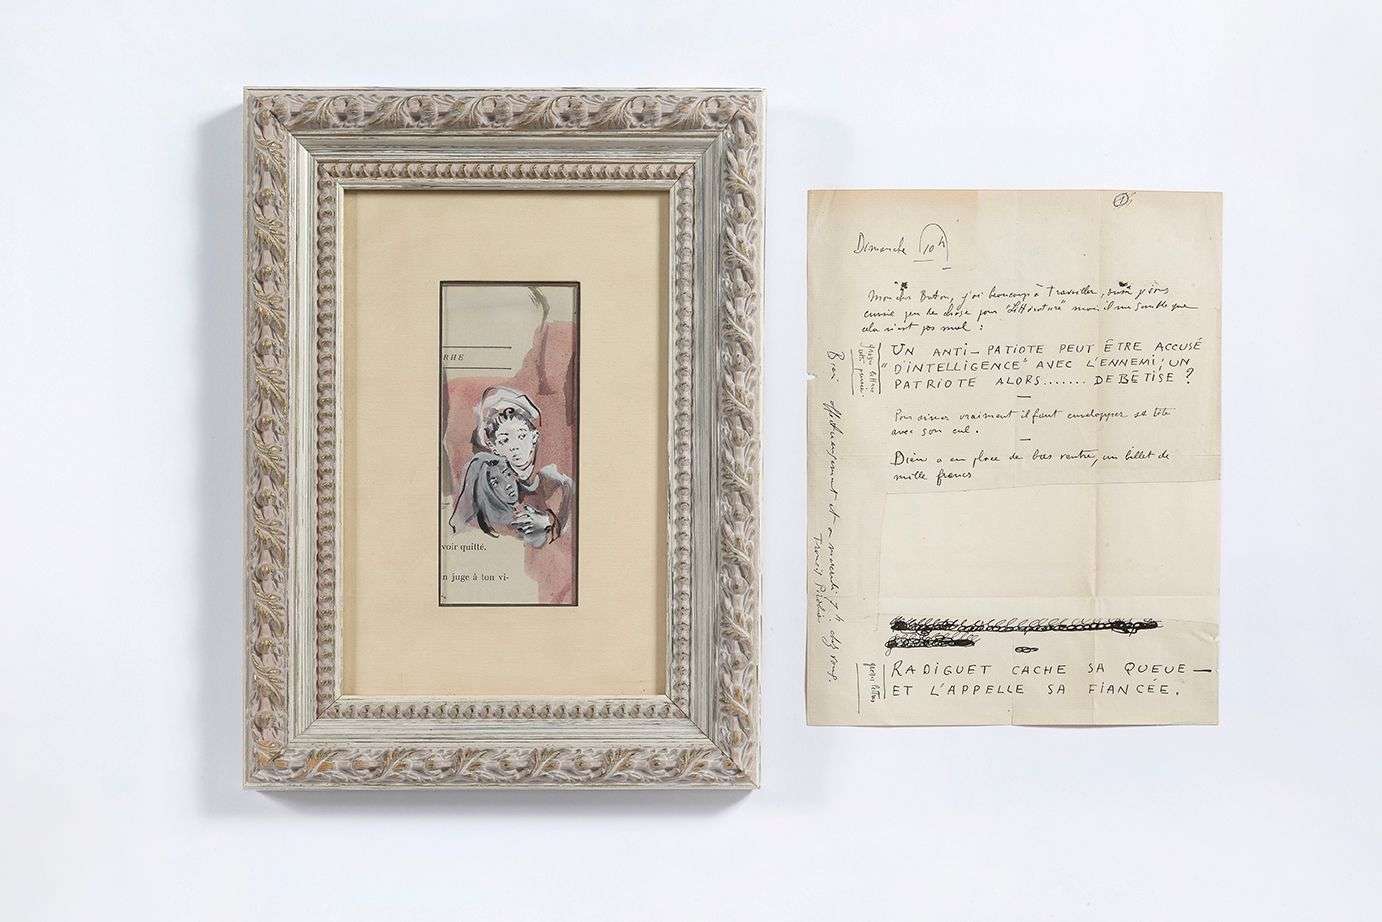 RHE
voir quitté.
n juge à ton vi-
①
Dimanche 10h
Mon cher Breton, j'ai beaucoup à travailler, aussi je vous
envoie peu de chose pour "Littérature" mais il me semble que
cela n'est pas mal :
UN ANTI-PATIOTE PEUT ÊTRE ACCUSÉ
"D'INTELLIGENCE" AVEC L'ENNEMI; UN
PATRIOTE ALORS....... DE BÊTISE ?
Pour aimer vraiment il faut envelopper sa tête
avec son cul.
Dieu a en place de bas ventre, un billet de
mille francs
RADIGUET CACHE SA QUEUE —
ET L'APPELLE SA FIANCÉE.
grosses lettres
grosses lettres
Bien affectueusement et à mercredi 7h chez vous.
Francis Picabia